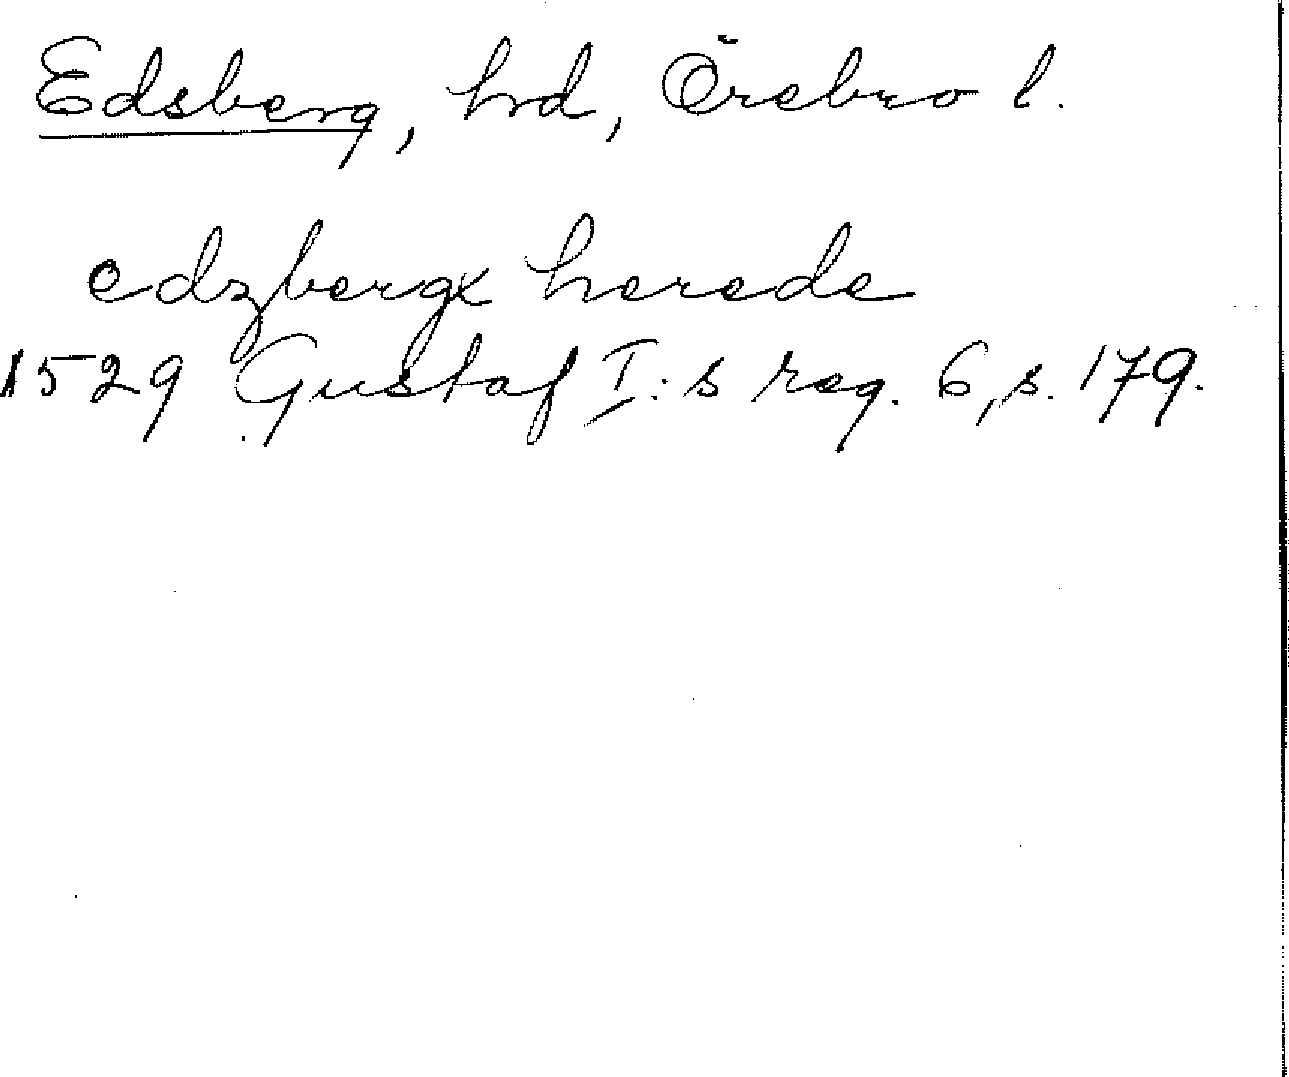 Edsberg, hrd, Örebro l.
edzbergx herede
1529 Gustaf I:s reg. 6, s. 179.